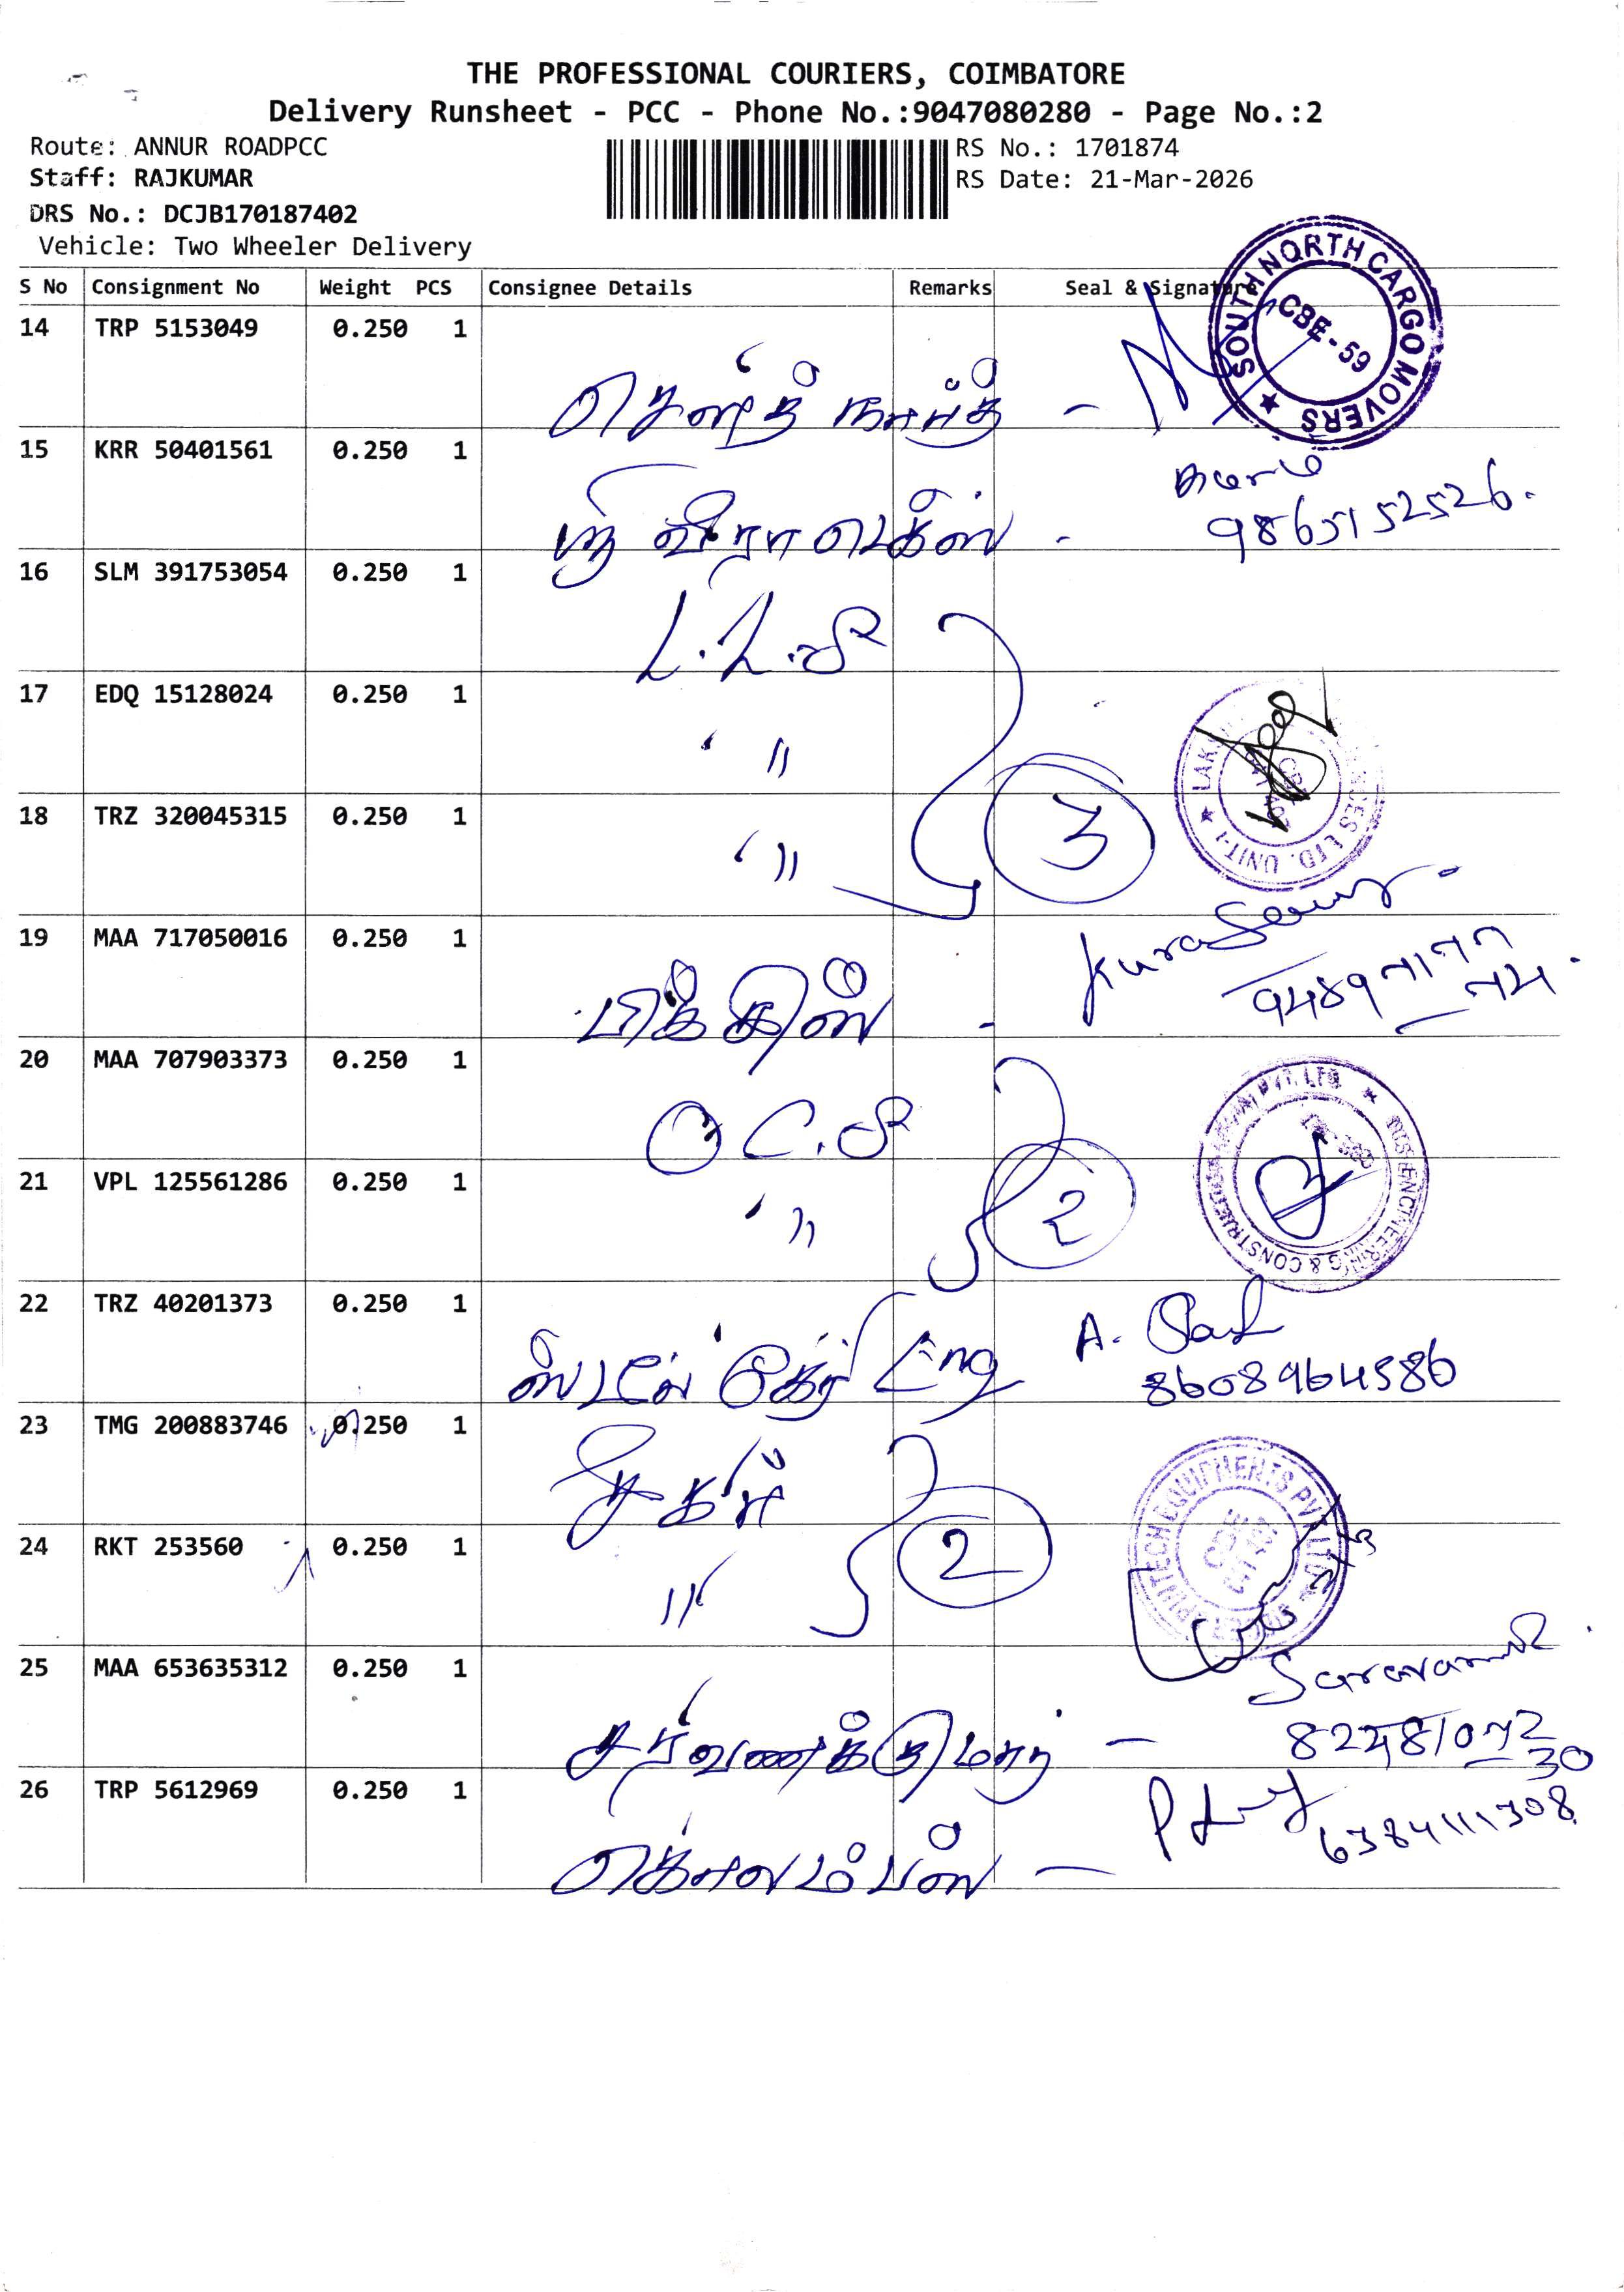 THE PROFESSIONAL COURIERS, COIMBATORE
Delivery Runsheet - PCC - Phone No.:9047080280 - Page No.:2
Route: ANNUR ROADPCC
RS No.: 1701874
Staff: RAJKUMAR
RS Date: 21-Mar-2026
DRS No.: DCJB170187402
Vehicle: Two Wheeler Delivery
S No Consignment No Weight PCS Consignee Details Remarks Seal & Signature
SOUTH NORTH CARGO MOVERS CBE-59
14 TRP 5153049 0.250 1
சௌத் நார்த் -
15 KRR 50401561 0.250 1
ஸ்ரீ வீரா டெக்ஸ் -
9865152526.
16 SLM 391753054 0.250 1
17 EDQ 15128024 0.250 1
"
18 TRZ 320045315 0.250 1
" 3
LTD. UNIT-1
19 MAA 717050016 0.250 1
20 MAA 707903373 0.250 1
ENGINEERING & CONSTRUCTION PVT. LTD.
21 VPL 125561286 0.250 1
" 2
22 TRZ 40201373 0.250 1
Eng
A.
8608964586
23 TMG 200883746 0.250 1
EQUIPMENTS PVT LTD
24 RKT 253560 0.250 1
" 2
25 MAA 653635312 0.250 1
சரவணக்குமார் -
26 TRP 5612969 0.250 1
6384111308